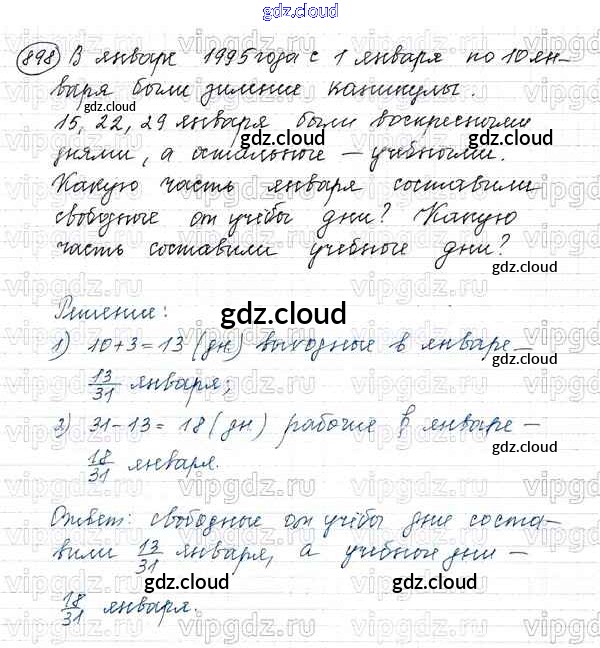 gdz.cloud
898 В январе 1995 года с 1 января по 10 ян-
варя были зимние каникулы.
gdz.cloud
15, 22, 29 января были воскресными
gdz.cloud
днями, а остальные — учебными.
gdz.cloud
Какую часть января составили
gdz.cloud
свободные от учёбы дни? Какую
часть составили учебные дни?
gdz.cloud
Решение:
gdz.cloud
1) 10+3=13 (дн) выходные в январе —
13/31 января;
gdz.cloud
2) 31-13=18 (дн) рабочие в январе —
gdz.cloud
18/31 января.
gdz.cloud
Ответ: свободные от учёбы дни соста-
gdz.cloud
вили 13/31 января, а учебные дни —
gdz.cloud
18/31 января.
gdz.cloud
vipgdz.ru